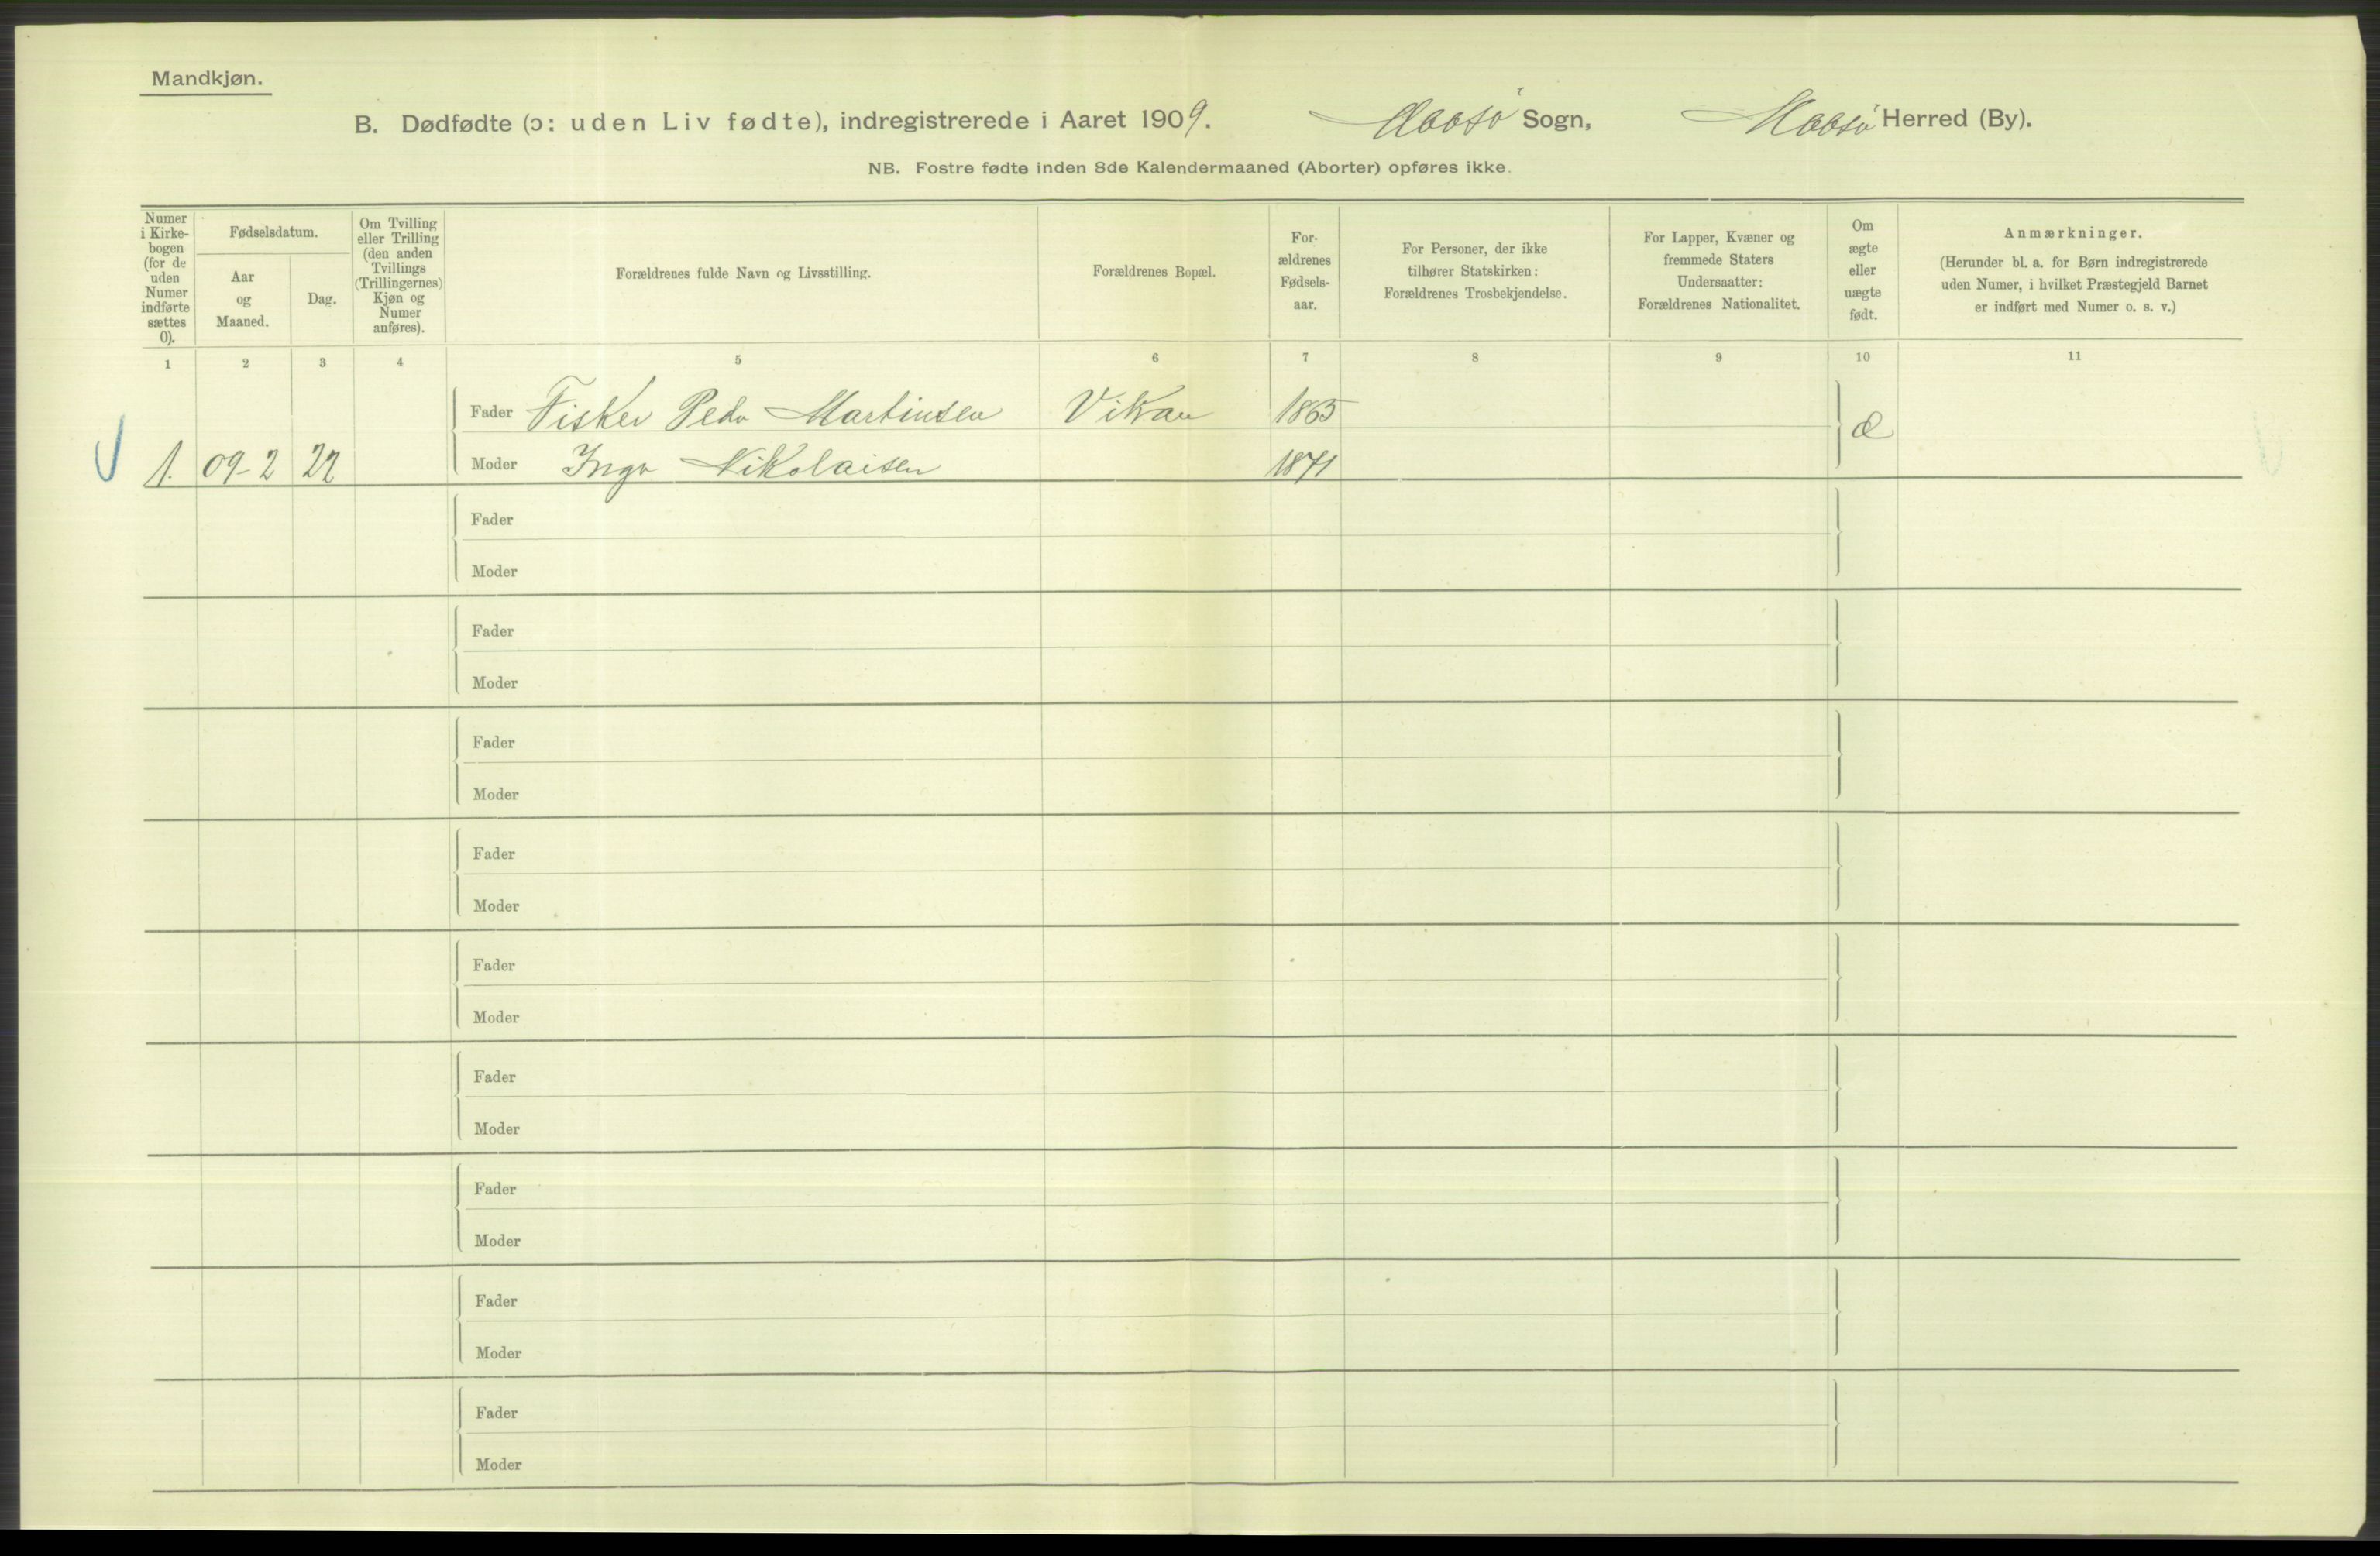 Mandkjøn.
B. Dødfødte (ɔ: uden Liv fødte), indregistrerede i Aaret 1909. Maasø Sogn, Maasø Herred (By).
NB. Fostre fødte inden 8de Kalendermaaned (Aborter) opføres ikke.
Numer
i Kirke-
bogen
(for de
uden
Numer
indførte
sættes
0).
Fødselsdatum.
Aar
og
Maaned.
Dag.
Om Tvilling
eller Trilling
(den anden
Tvillings
(Trillingernes)
Kjøn og
Numer
anføres).
Forældrenes fulde Navn og Livsstilling.
Forældrenes Bopæl.
For-
ældrenes
Fødsels-
aar.
For Personer, der ikke
tilhører Statskirken:
Forældrenes Trosbekjendelse.
For Lapper, Kvæner og
fremmede Staters
Undersaatter:
Forældrenes Nationalitet.
Om
ægte
eller
uægte
født.
Anmærkninger.
(Herunder bl. a. for Børn indregistrerede
uden Numer, i hvilket Præstegjeld Barnet
er indført med Numer o. s. v.)
1 2 3 4 5 6 7 8 9 10 11
Fader Fisker Peder Martinsen Vikan 1865
æ
1. 09-2 22 Moder Inga Nikolaisen 1871
Fader
Moder
Fader
Moder
Fader
Moder
Fader
Moder
Fader
Moder
Fader
Moder
Fader
Moder
Fader
Moder
Fader
Moder